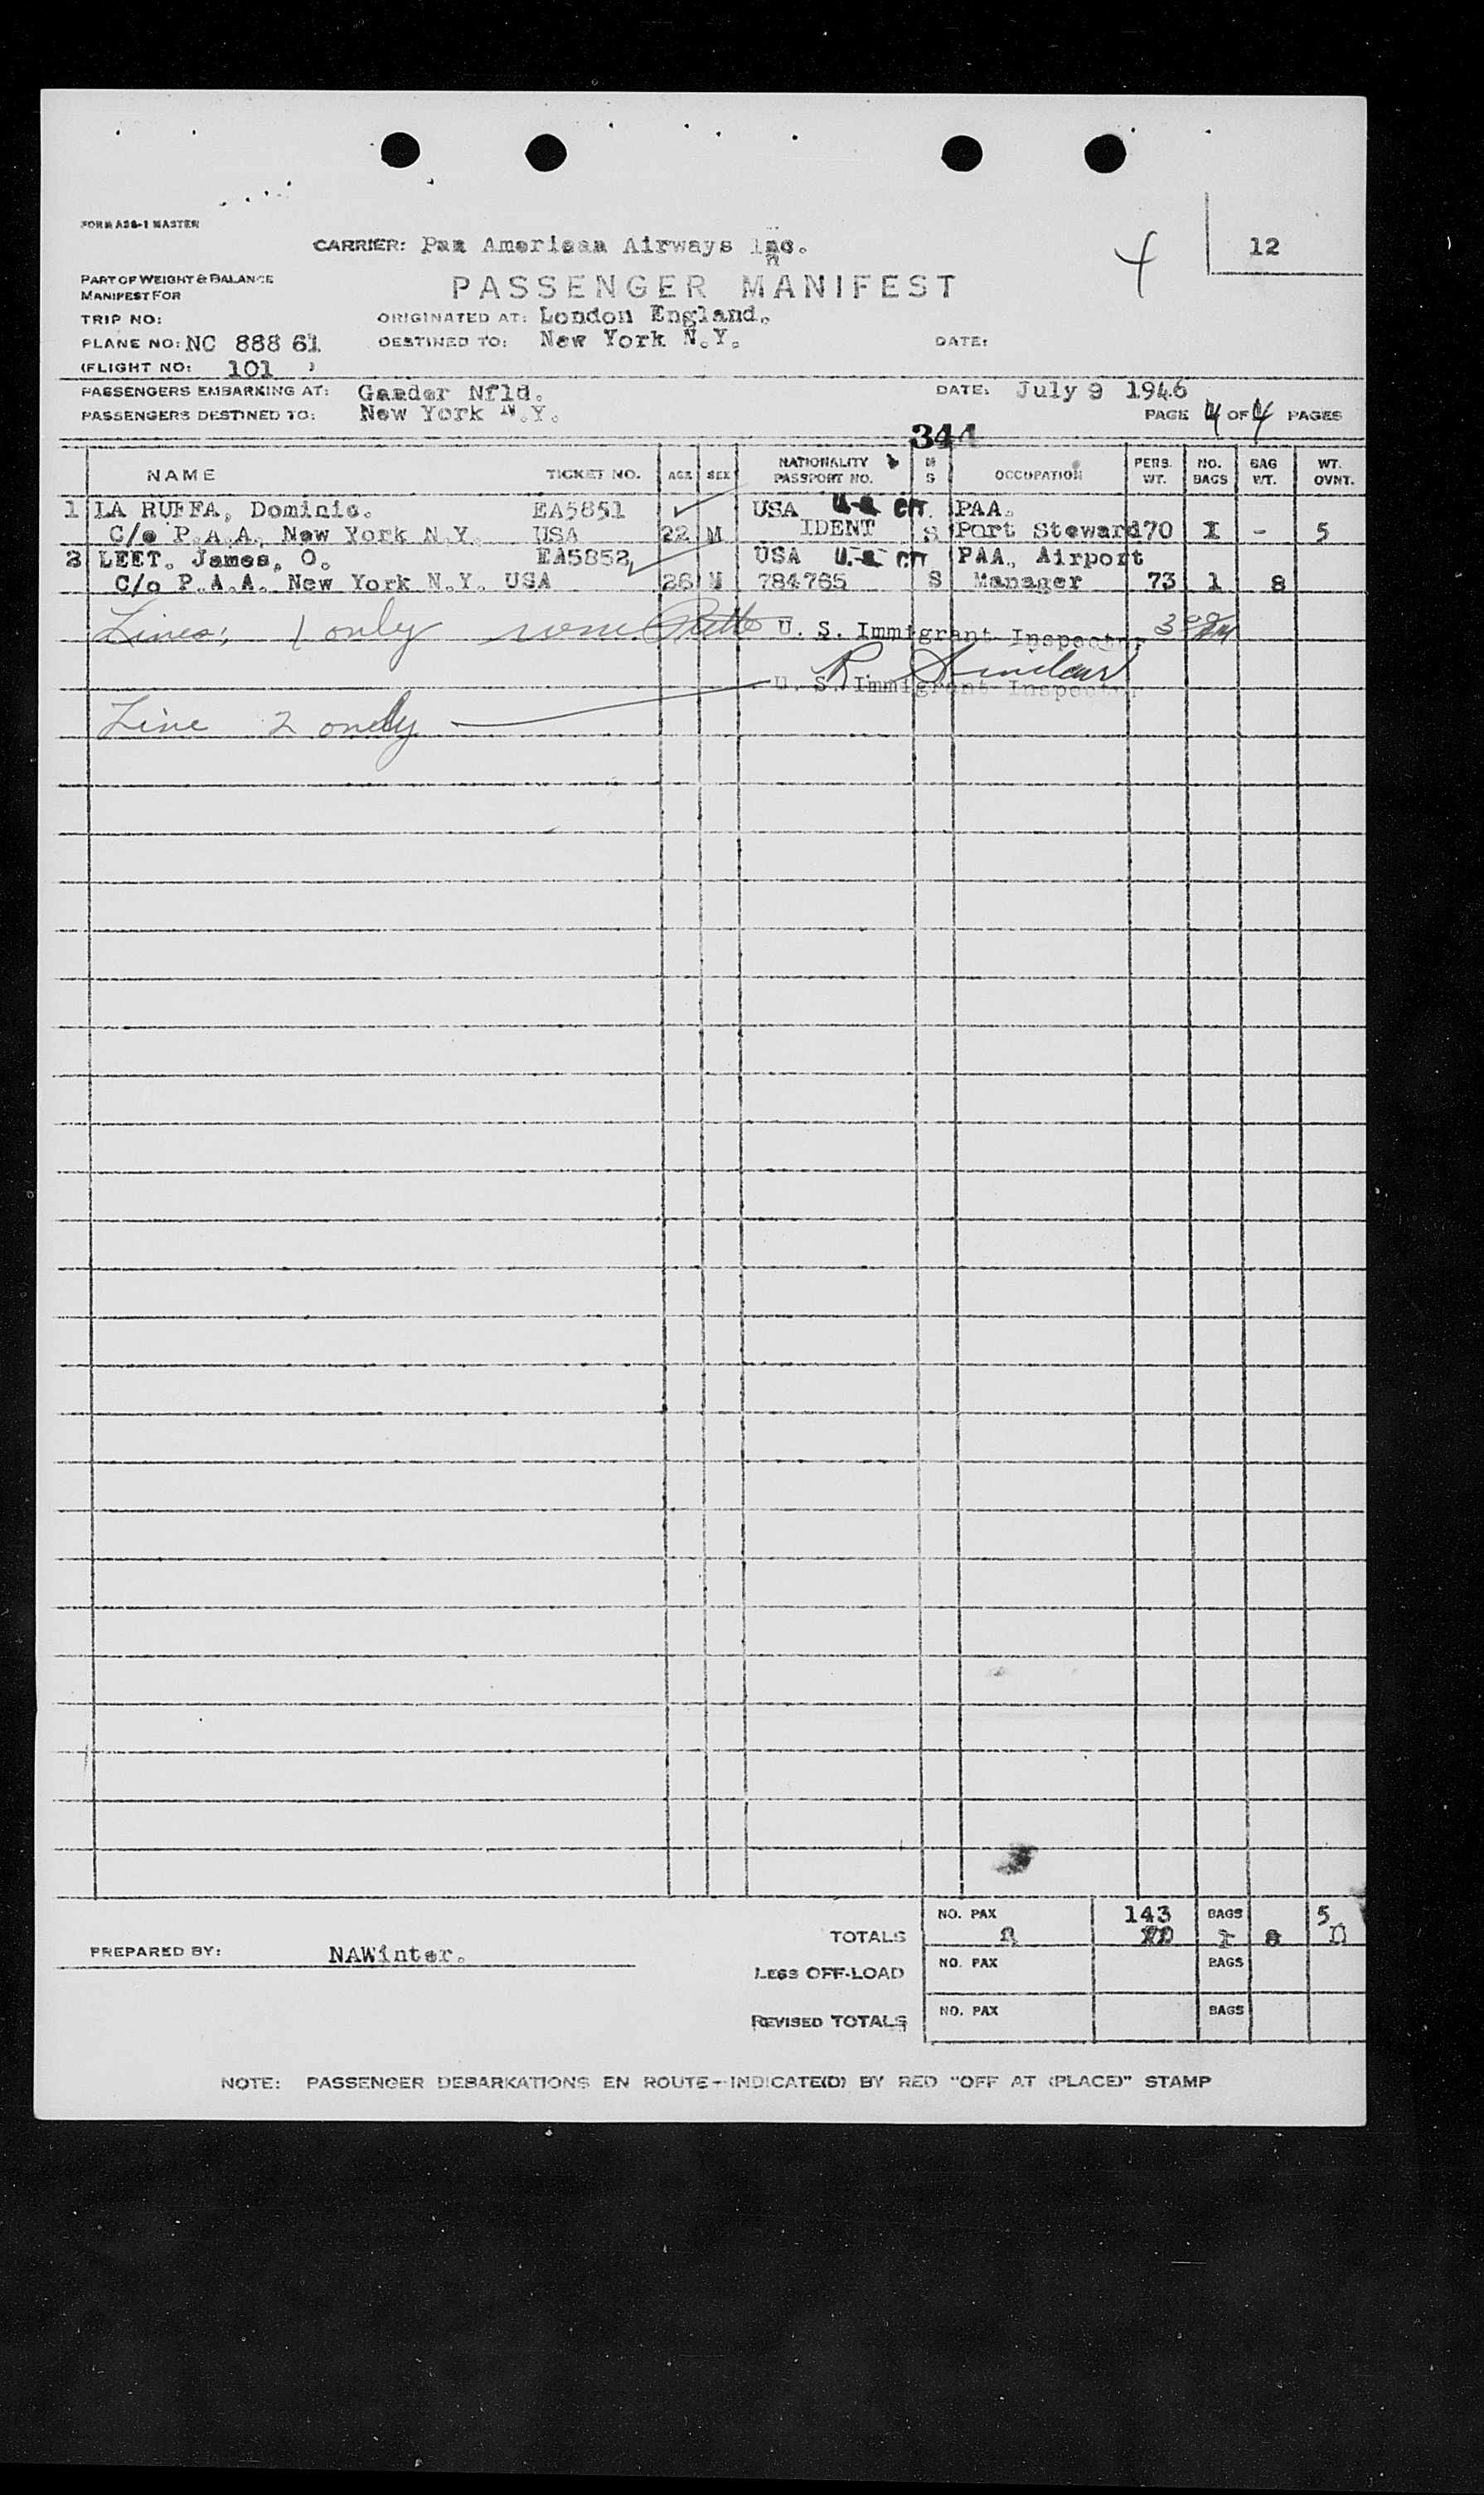 FORM AS8-1 MASTER
CARRIER: Pan American Airways Inc.
4
12
PART OF WEIGHT & BALANCE
PASSENGER MANIFEST
MANIFEST FOR
TRIP NO: ORIGINATED AT: London England.
PLANE NO: NC 888 61 DESTINED TO: New York N.Y. DATE:
(FLIGHT NO: 101 )
PASSENGERS EMBARKING AT: Gander Nfld. DATE: July 9 1946
PASSENGERS DESTINED TO: New York N.Y. PAGE 4 OF 4 PAGES
344
NAME TICKET NO. AGE SEX NATIONALITY PASSPORT NO. M S OCCUPATION PERS. WT. NO. BAGS BAG WT. WT. OVNT.
1 LA RUFFA, Dominic. EA5851 USA PAA.
C/o P.A.A. New York N.Y. USA 22 M IDENT S Port Steward 70 1 - 5
2 LEET. James, O. EA5852 USA PAA. Airport
C/o P.A.A. New York N.Y. USA 26 M 784765 S Manager 73 1 8
Lines; 1 only U. S. Immigrant Inspector
U. S. Immigrant Inspector
Line 2 only
NO. PAX 143 BAGS 5
TOTALS
PREPARED BY: NAWinter.
LESS OFF-LOAD NO. PAX BAGS
REVISED TOTALS NO. PAX BAGS
NOTE: PASSENGER DEBARKATIONS EN ROUTE - INDICATE(D) BY RED "OFF AT (PLACE)" STAMP